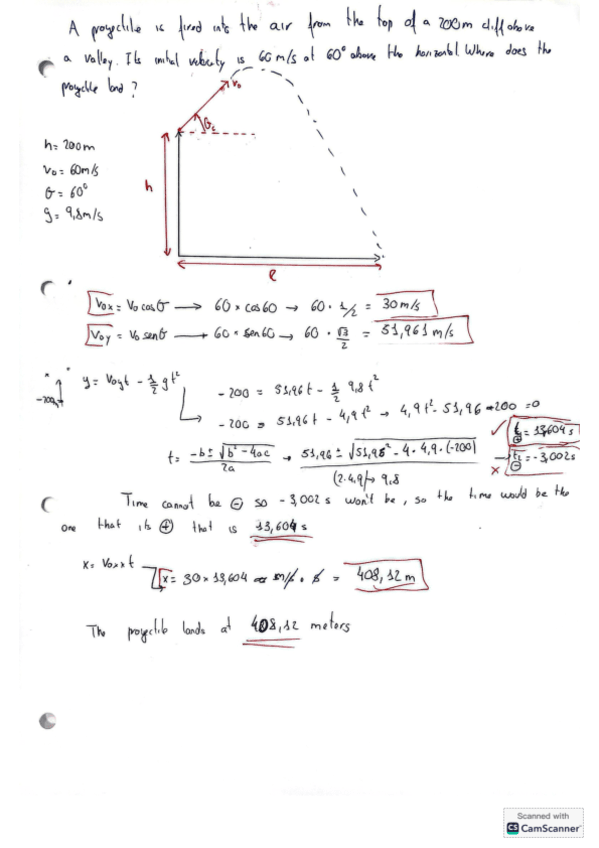 A proyectile is fired into the air from the top of a 200m cliff above
a valley. Its initial velocity is 60 m/s at 60° above the horizontal. Where does the
proyectile land?
V₀
θ₀
h
e
h= 200m
V₀ = 60m/s
θ = 60°
g = 9,8m/s
V₀x = V₀ cosθ → 60 × cos60 → 60 · 1/2 = 30 m/s
V₀y = V₀ senθ → 60 × sen60 → 60 · √3/2 = 51,961 m/s
-200
y = V₀yt - 1/2 gt²
-200 = 51,96t - 1/2 9,8t²
-200 = 51,96t - 4,9t² → 4,9t² - 51,96 -200 = 0
t₁ = 13,604 s
t₂ = -3,002s
t= -b ± √b² - 4ac / 2a → 51,96 ± √51,96² - 4 · 4,9 · (-200) / (2·4,9) → 9,8
Time cannot be ⊖ so -3,002 s won't be, so the time would be the
one that its ⊕ that is 13,604 s
x = V₀x × t
x = 30 × 13,604 m/s · s = 408,12 m
The proyectile lands at 408,12 meters
Scanned with
CS CamScanner